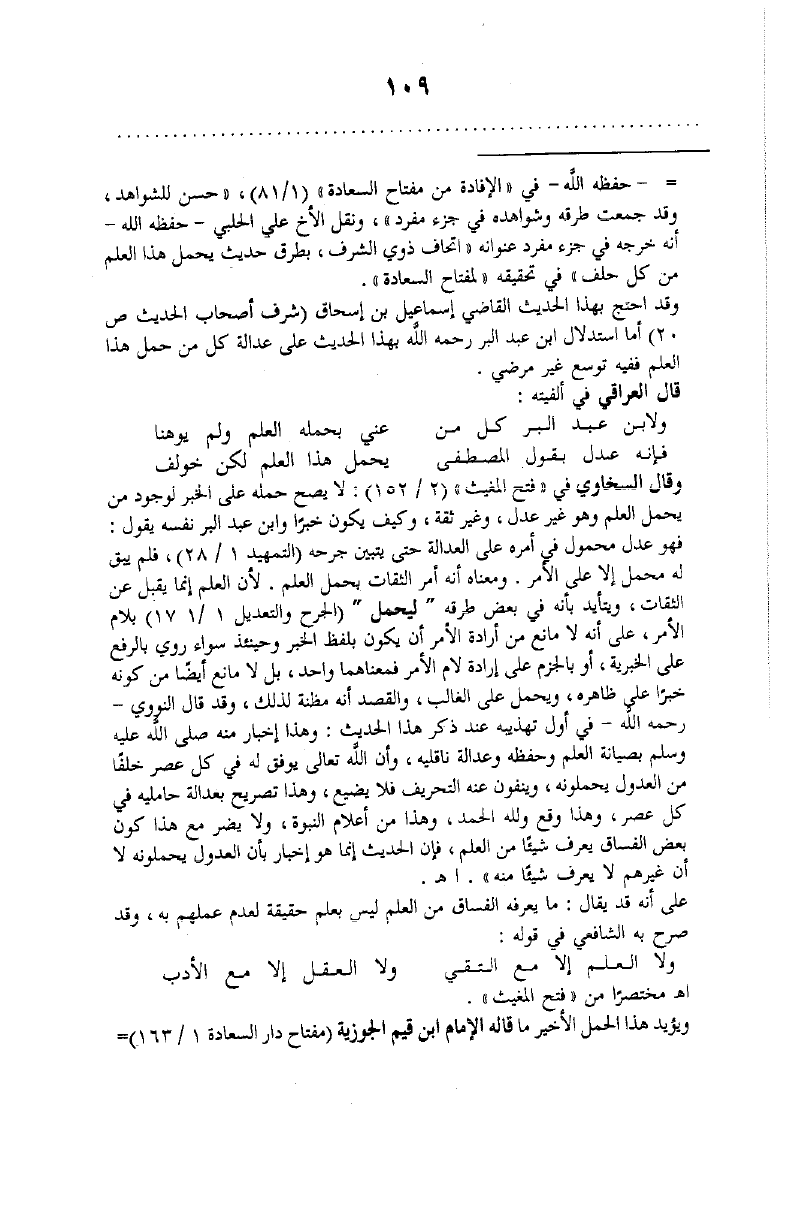 ١٠٩
= - حفظه الله - في « الإفادة من مفتاح السعادة » (٨١/١)، « حسن للشواهد ،
وقد جمعت طرقه وشواهده في جزء مفرد » ، ونقل الأخ علي الحلبي - حفظه الله -
أنه خرجه في جزء مفرد عنوانه « اتحاف ذوي الشرف ، بطرق حديث يحمل هذا العلم
من كل حلف » في تحقيقه « لمفتاح السعادة » .
وقد احتج بهذا الحديث القاضي إسماعيل بن إسحاق (شرف أصحاب الحديث ص
٢٠) أما استدلال ابن عبد البر رحمه الله بهذا الحديث على عدالة كل من حمل هذا
العلم ففيه توسع غير مرضي .
قال العراقي في ألفيته :
ولابن عبد البر كل من عني بحمله العلم ولم يوهنا
فإنه عدل بقول المصطفى يحمل هذا العلم لكن خولف
وقال السخاوي في « فتح المغيث » (٢ / ١٥٢) : لا يصح حمله على الخبر لوجود من
يحمل العلم وهو غير عدل ، وغير ثقة ، وكيف يكون خبرًا وابن عبد البر نفسه يقول :
فهو عدل محمول في أمره على العدالة حتى يتبين جرحه (التمهيد ١ / ٢٨) ، فلم يبق
له محمل إلا على الأمر . ومعناه أنه أمر الثقات بحمل العلم . لأن العلم إنما يقبل عن
الثقات ، ويتأيد بأنه في بعض طرقه " ليحمل " (الجرح والتعديل ١ /١ ١٧) بلام
الأمر ، على أنه لا مانع من أرادة الأمر أن يكون بلفظ الخبر وحينئذ سواء روي بالرفع
على الخبرية ، أو بالجزم على إرادة لام الأمر فمعناهما واحد ، بل لا مانع أيضًا من كونه
خبرًا على ظاهره ، ويحمل على الغالب ، والقصد أنه مظنة لذلك ، وقد قال النووي -
رحمه الله - في أول تهذيبه عند ذكر هذا الحديث : وهذا إخبار منه صلى الله عليه
وسلم بصيانة العلم وحفظه وعدالة ناقليه ، وأن الله تعالى يوفق له في كل عصر خلفًا
من العدول يحملونه ، وينفون عنه التحريف فلا يضيع ، وهذا تصريح بعدالة حامليه في
كل عصر ، وهذا وقع ولله الحمد ، وهذا من أعلام النبوة ، ولا يضر مع هذا كون
بعض الفساق يعرف شيئًا من العلم ، فإن الحديث إنما هو إخبار بأن العدول يحملونه لا
أن غيرهم لا يعرف شيئًا منه » . ا هـ .
على أنه قد يقال : ما يعرفه الفساق من العلم ليس بعلم حقيقة لعدم عملهم به ، وقد
صرح به الشافعي في قوله :
ولا العلم إلا مع التقي ولا العقل إلا مع الأدب
اهـ مختصرًا من « فتح المغيث » .
ويؤيد هذا الحمل الأخير ما قاله الإمام ابن قيم الجوزية (مفتاح دار السعادة ١ / ١٦٣)=